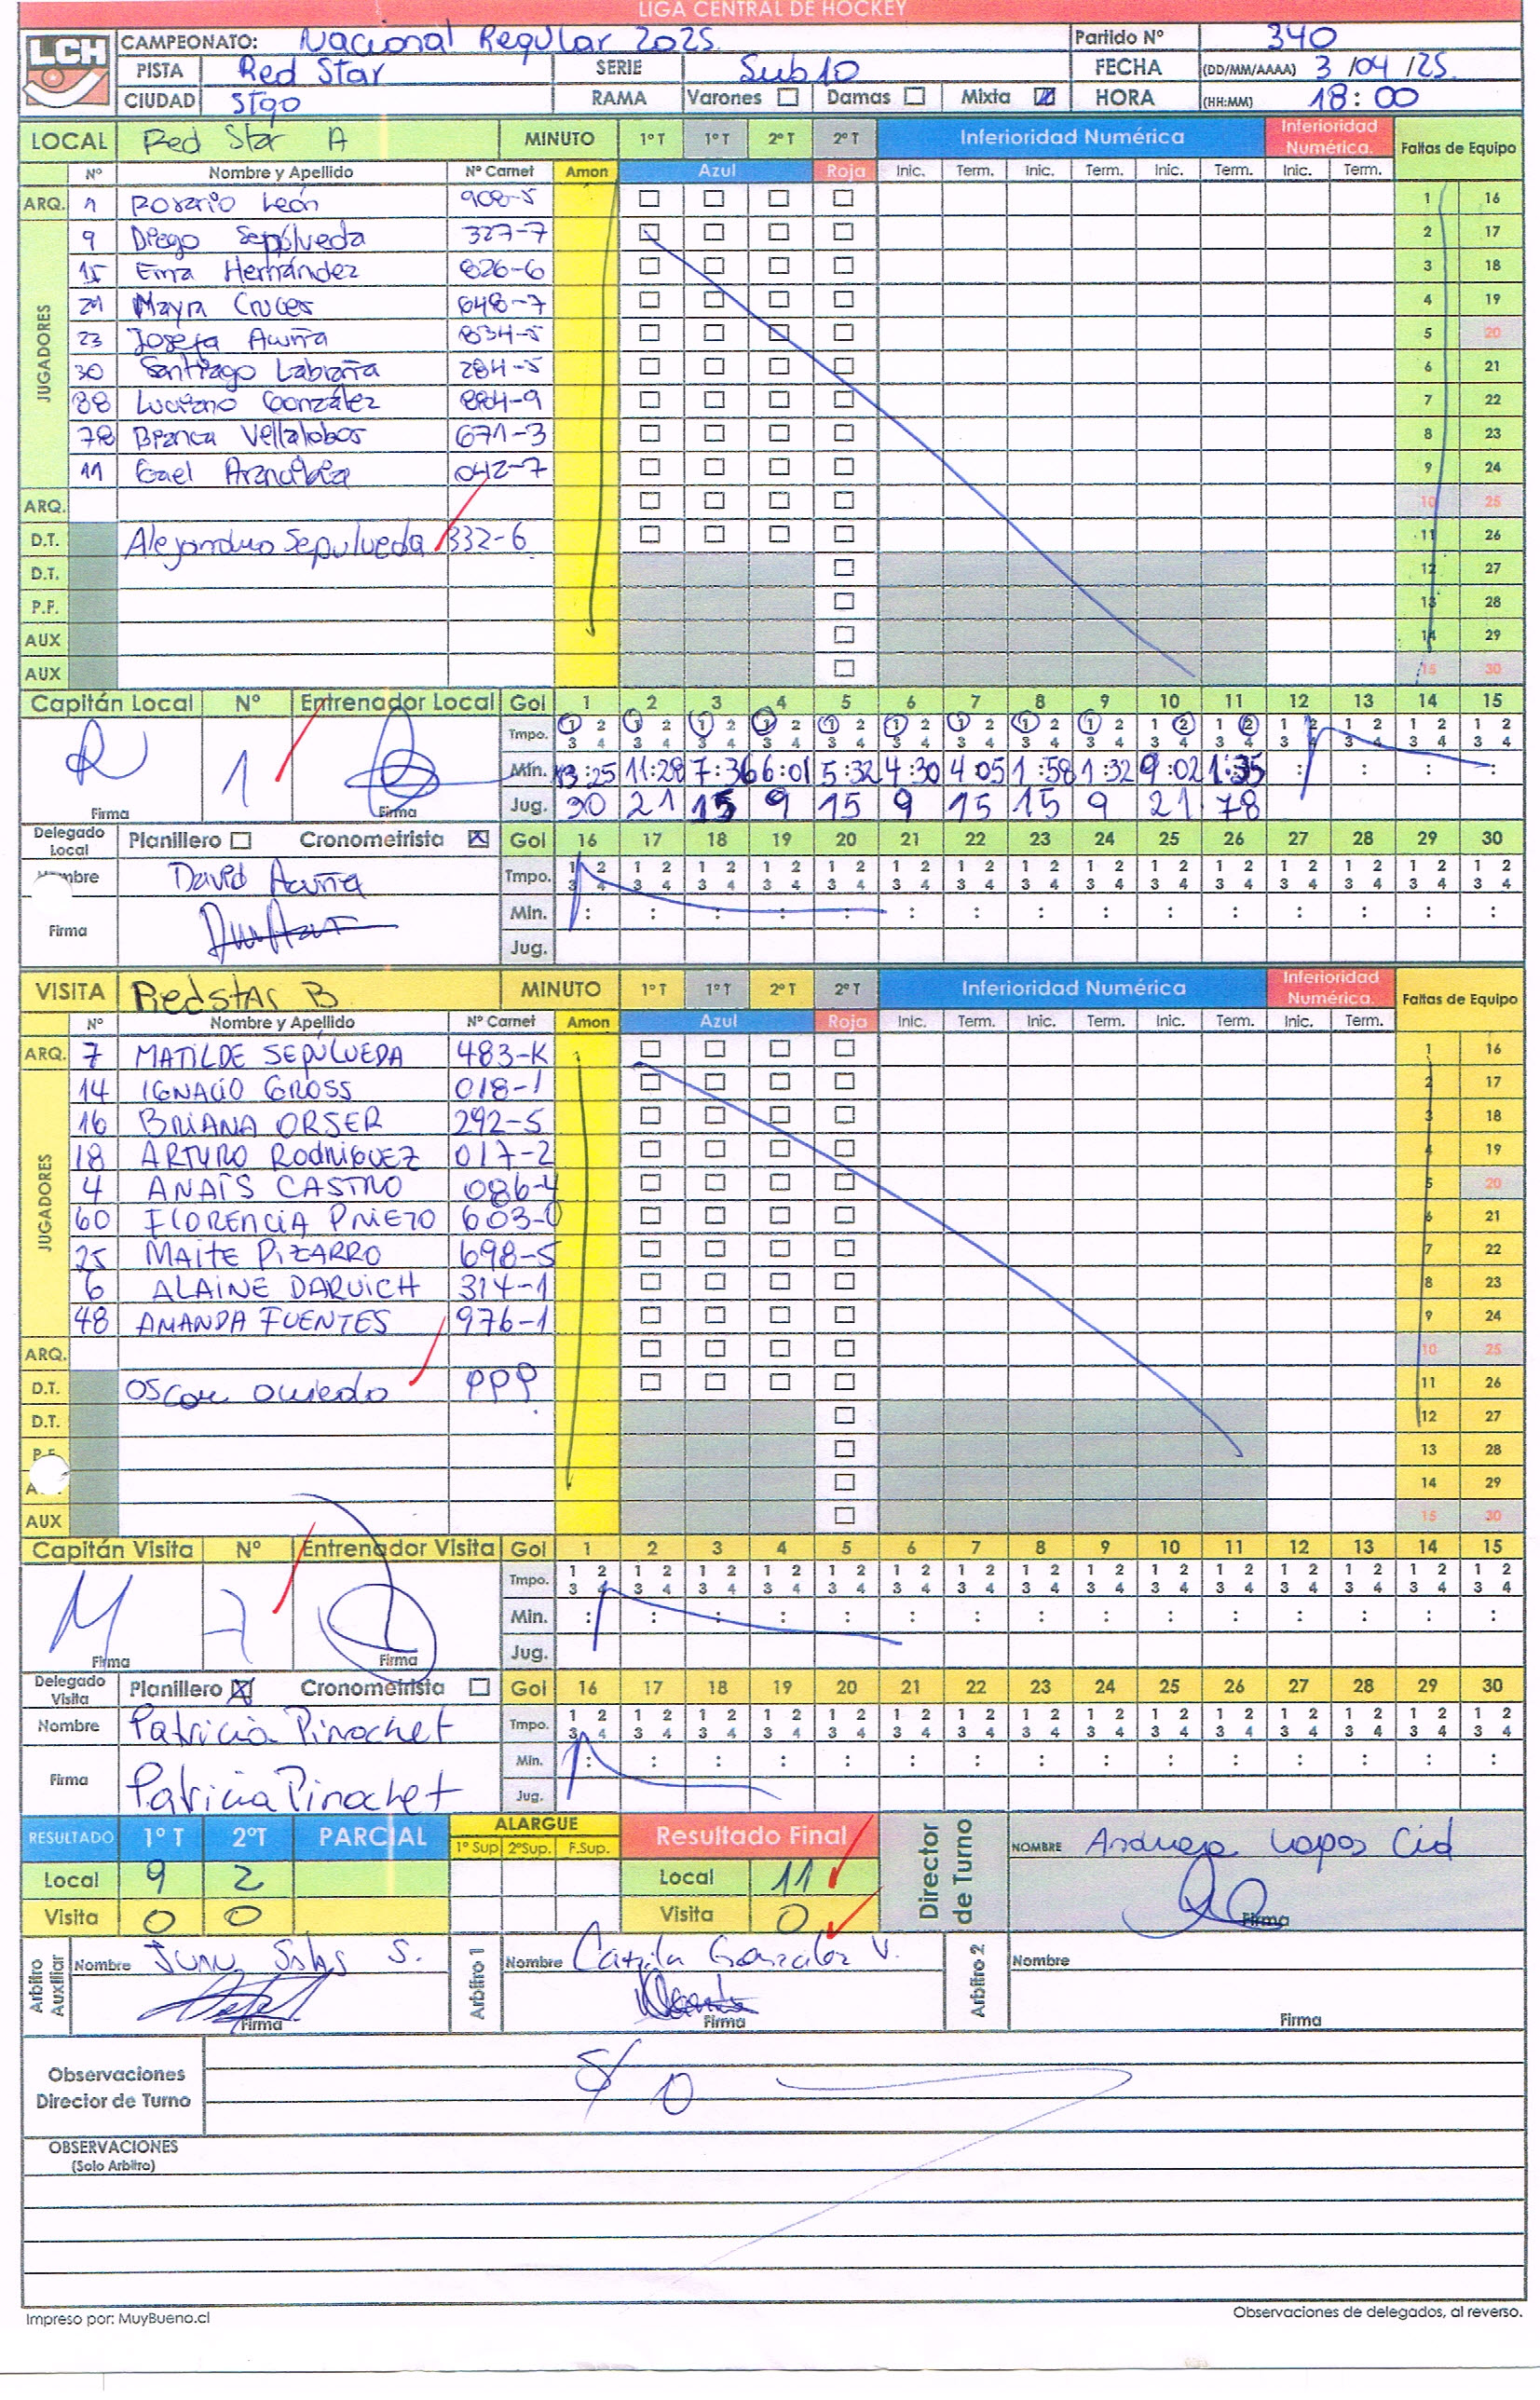 LIGA CENTRAL DE HOCKEY
LCH
CAMPEONATO: Nacional Regular 2025 Partido Nº 340
PISTA Red Star SERIE Sub10 FECHA (DD/MM/AAAA) 3 /04 /25
CIUDAD Stgo RAMA Varones Damas Mixta HORA (HH:MM) 18:00
LOCAL Red Star A MINUTO 1º T 1º T 2º T 2º T Inferioridad Numérica Inferioridad Numérica. Faltas de Equipo
Nº Nombre y Apellido Nº Carnet Amon Azul Roja Inic. Term. Inic. Term. Inic. Term. Inic. Term.
ARQ. 1 Rosario León 908-5 1 16
JUGADORES
9 Diego Sepúlveda 327-7 2 17
15 Ema Hernández 826-6 3 18
21 Mayra Cruces 648-7 4 19
23 Josefa Acuña 834-5 5 20
30 Santiago Labraña 284-5 6 21
88 Luciano González 884-9 7 22
78 Bianca Villalobos 671-3 8 23
11 Gael Arancibia 042-7 9 24
ARQ. 10 25
D.T. Alejandro Sepulveda 332-6 11 26
D.T. 12 27
P.F. 13 28
AUX 14 29
AUX 15 30
Capitán Local Nº Entrenador Local Gol 1 2 3 4 5 6 7 8 9 10 11 12 13 14 15
Tmpo. 1 2 1 2 1 2 1 2 1 2 1 2 1 2 1 2 1 2 1 2 1 2 1 2 1 2 1 2 1 2
3 4 3 4 3 4 3 4 3 4 3 4 3 4 3 4 3 4 3 4 3 4 3 4 3 4 3 4 3 4
1 Min. 13:25 11:28 7:36 6:01 5:32 4:30 4:05 1:58 1:32 9:02 1:35 : : : :
Firma Firma Jug. 30 21 15 9 15 9 15 15 9 21 78
Delegado Local Planillero Cronometrista Gol 16 17 18 19 20 21 22 23 24 25 26 27 28 29 30
mbre David Acuña Tmpo. 1 2 1 2 1 2 1 2 1 2 1 2 1 2 1 2 1 2 1 2 1 2 1 2 1 2 1 2 1 2
3 4 3 4 3 4 3 4 3 4 3 4 3 4 3 4 3 4 3 4 3 4 3 4 3 4 3 4 3 4
Firma Min. : : : : : : : : : : : : : : :
Jug.
VISITA Redstar B MINUTO 1º T 1º T 2º T 2º T Inferioridad Numérica Inferioridad Numérica. Faltas de Equipo
Nº Nombre y Apellido Nº Carnet Amon Azul Roja Inic. Term. Inic. Term. Inic. Term. Inic. Term.
ARQ. 7 MATILDE SEPÚLVEDA 483-K 1 16
JUGADORES
14 IGNACIO GROSS 018-1 2 17
16 BRIANA ORSER 292-5 3 18
18 ARTURO RODRIGUEZ 017-2 4 19
4 ANAÍS CASTRO 086-4 5 20
60 FLORENCIA PRIETO 603-0 6 21
25 MAITE PIZARRO 698-5 7 22
6 ALAINE DARUICH 314-1 8 23
48 AMANDA FUENTES 976-1 9 24
ARQ. 10 25
D.T. Oscar Oviedo PPP 11 26
D.T. 12 27
P.F. 13 28
A 14 29
AUX 15 30
Capitán Visita Nº Entrenador Visita Gol 1 2 3 4 5 6 7 8 9 10 11 12 13 14 15
Tmpo. 1 2 1 2 1 2 1 2 1 2 1 2 1 2 1 2 1 2 1 2 1 2 1 2 1 2 1 2 1 2
3 4 3 4 3 4 3 4 3 4 3 4 3 4 3 4 3 4 3 4 3 4 3 4 3 4 3 4 3 4
M 7 Min. : : : : : : : : : : : : : : :
Firma Firma Jug.
Delegado Visita Planillero Cronometrista Gol 16 17 18 19 20 21 22 23 24 25 26 27 28 29 30
Nombre Patricia Pinochet Tmpo. 1 2 1 2 1 2 1 2 1 2 1 2 1 2 1 2 1 2 1 2 1 2 1 2 1 2 1 2 1 2
3 4 3 4 3 4 3 4 3 4 3 4 3 4 3 4 3 4 3 4 3 4 3 4 3 4 3 4 3 4
Firma Patricia Pinochet Min. : : : : : : : : : : : : : : :
Jug.
RESULTADO 1º T 2ºT PARCIAL ALARGUE Resultado Final Director de Turno NOMBRE Cid
1º Sup 2ºSup. F.Sup.
Local 9 2 Local 11
Visita 0 0 Visita 0 Firma
Arbitro Auxiliar Nombre Salas S. Arbitro 1 Nombre Camila González V. Arbitro 2 Nombre
Firma Firma Firma
Observaciones Director de Turno S/O
OBSERVACIONES
(Solo Arbitro)
Impreso por: MuyBueno.cl Observaciones de delegados, al reverso.